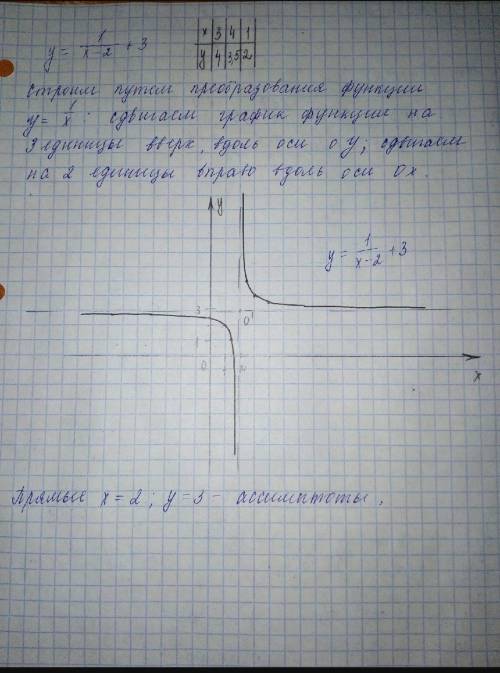 y = 1/(x-2) + 3
x 3 4 1
y 4 3,5 2
Строим путем преобразования функции
y = 1/x : сдвигаем график функции на
3 единицы вверх, вдоль оси оУ, сдвигаем
на 2 единицы вправо вдоль оси Ох.
y
y = 1/(x-2) + 3
3
0'
1
0 1 2
x
Прямые x = 2; y = 3 - ассимптоты.